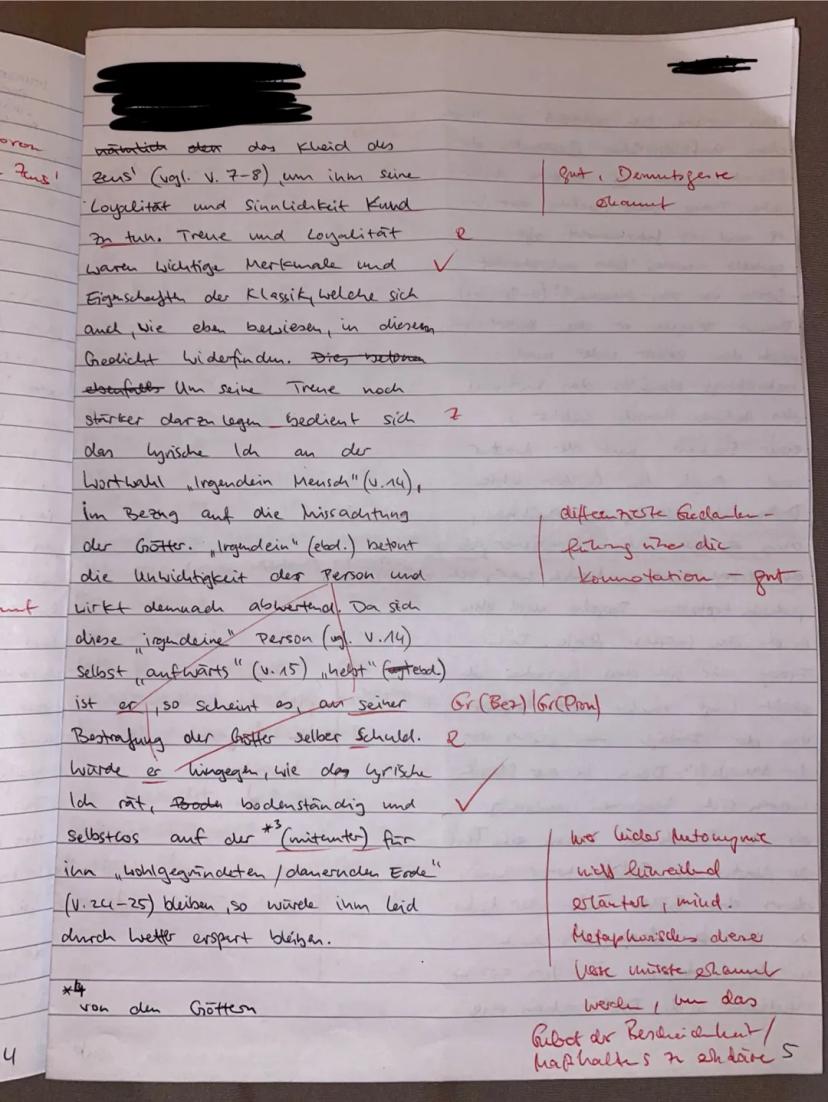 oren
Zeus'
~~nämlich den~~ das Kleid des
Zeus' (vgl. V. 7-8), um ihm seine
Loyalität und Sinnlichkeit Kund
zu tun. Treue und Loyalität
waren wichtige Merkmale und
Eigenschaften der Klassik, welche sich
auch, wie eben bewiesen, in diesem
Gedicht widerfinden. ~~Dies betonen~~
~~ebenfalls~~ Um seine Treue noch
stärker darzulegen bedient sich
das lyrische Ich an der
Wortwahl „Irgendein Mensch" (V.14),
im Bezug auf die Missachtung
der Götter. „Irgendein" (ebd.) betont
die Unwichtigkeit der Person und
wirkt demnach abwertend. Da sich
diese „irgendeine" Person (vgl. V.14)
selbst „aufwärts" (V.15) „hebt" (ebd.)
ist er, so scheint es, an seiner
Bestrafung der Götter selber Schuld.
Würde er hingegen, wie das lyrische
Ich rät, bodenständig und
selbstlos auf der *3 (mitunter) für
ihn „wohlgegründeten / dauernden Erde"
(V.24-25) bleiben, so würde ihm Leid
durch Wetter erspart bleiben.
*4
von den Göttern
gut, Demutsgeste
erkannt
R
Z
differenzierte Gedanken-
führung über die
Konnotation - gut
Gr (Bez) | Gr (Pron)
R
hier leider Metonymie
nicht hinreichend
erläutert, mind.
Metaphorisches dieser
Verse müsste erkannt
werden, um das
Gebot der Bescheidenheit /
Maßhaltens zu erklären
4
5